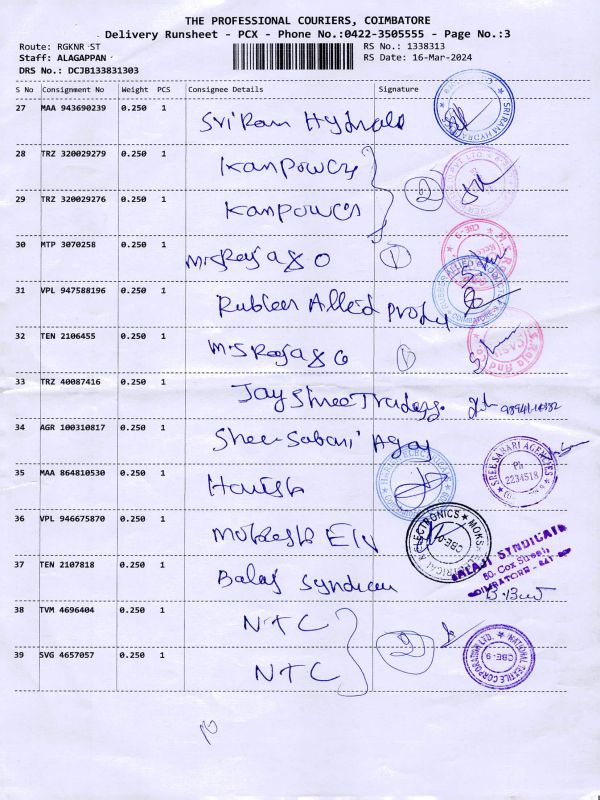 THE PROFESSIONAL COURIERS, COIMBATORE
Delivery Runsheet - PCX - Phone No.:0422-3505555 - Page No.:3
Route: RGKNR ST RS No.: 1338313
Staff: ALAGAPPAN RS Date: 16-Mar-2024
DRS No.: DCJB133831303
S No Consignment No Weight PCS Consignee Details Signature
27 MAA 943690239 0.250 1 Sri Ram
28 TRZ 320029279 0.250 1 Kanpowers
2
29 TRZ 320029276 0.250 1 Kanpowers
30 MTP 3070258 0.250 1 M.S Raja & Co 1
31 VPL 947588196 0.250 1 Rubber Allied Produ
RUBBER ALLIED PRODU
COIMBATORE
32 TEN 2106455 0.250 1 M.S Raja & Co 1
33 TRZ 40087416 0.250 1 Jay Shree Traders.
34 AGR 100310817 0.250 1 Shree Sabari Agas
SREE SABARI AGENCIES
Ph
2234518
35 MAA 864810530 0.250 1 Harish
36 VPL 946675870 0.250 1 Mokesh
CBE-9
37 TEN 2107818 0.250 1 Balaj Syndicau
BALAJI SYNDICATE
80, Cox Street,
COIMBATORE
38 TVM 4696404 0.250 1 NTC
2
39 SVG 4657057 0.250 1 NTC
NATIONAL TEXTILE CORPORATION LTD.
CBE-9